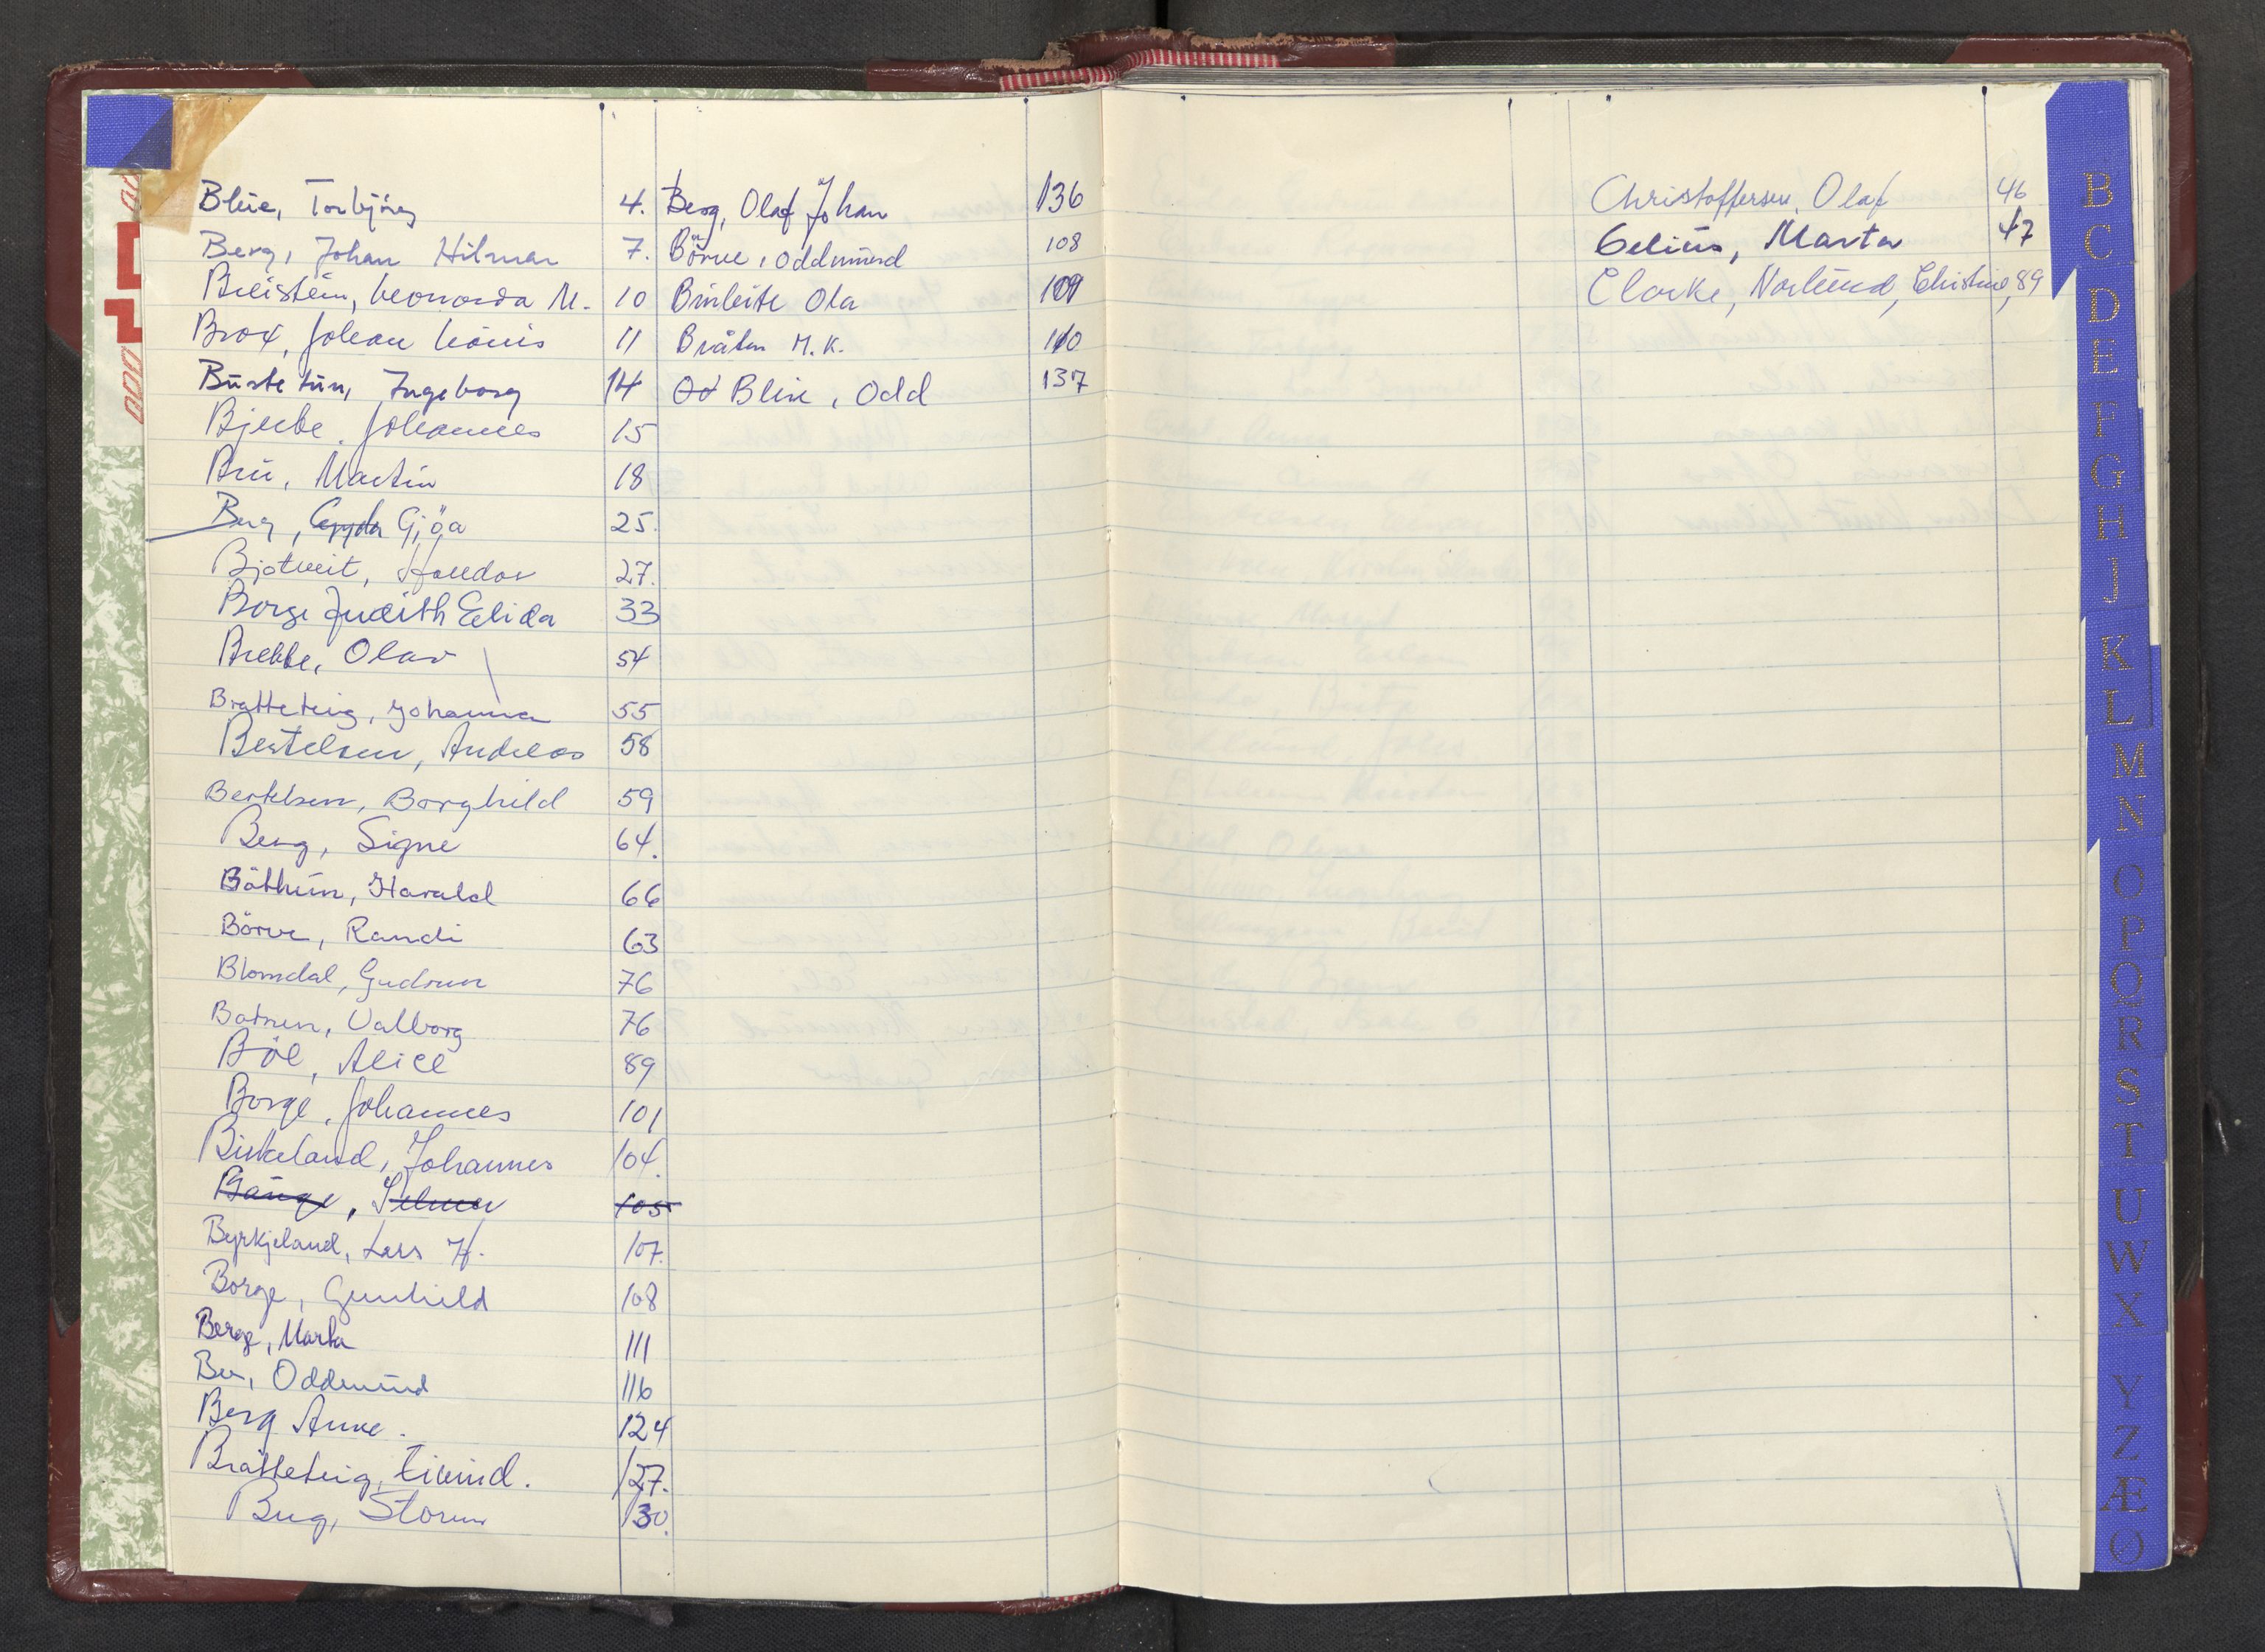 Bleie, Torbjörg 4.
Berg, Johan Hilmar 7.
Breistein, Leonarda M. 10
Brox, Johan Louis 11
Büstetün, Ingeborg 14
Bjerke, Johannes 15
Brü, Martin 18
Berg, Gyda Gjöa 25.
Bjotveit, Halldor 27.
Borge Judith Elida 33
Brekke, Olav 54
Bratteteig, Johanna 55
Bertelsen, Andreas 58
Bertelsen, Borghild 59
Berg, Signe 64.
Böthün, Harald 66
Börve, Randi 63
Blomdal, Gudrun 76
Botnen, Valborg 76
Böe, Alice 89
Borge, Johannes 101
Birkeland, Johannes 104.
Bauge, Selmer 105
Byrkjeland, Lars H. 107.
Borge, Gunhild 108
Berge, Marta 111
Bu, Oddmünd 116
Berg Anne. 124
Bråtteteig, Eivind. 127.
Berg, Storm 130.
Berg, Olaf Johan 136
Börve, Oddmünd 108
Binleite Ola 109
Bråten M. K. 110
Od Bleie, Odd 137
Christoffersen, Olaf 46
Celiüs, Marta 47
Clarke, Norlünd, Christine, 89
B
C
D
E
F
G
H
IJ
K
L
M
N
O
P
Q
R
S
T
U
W
X
Y
Z
Æ
Ø